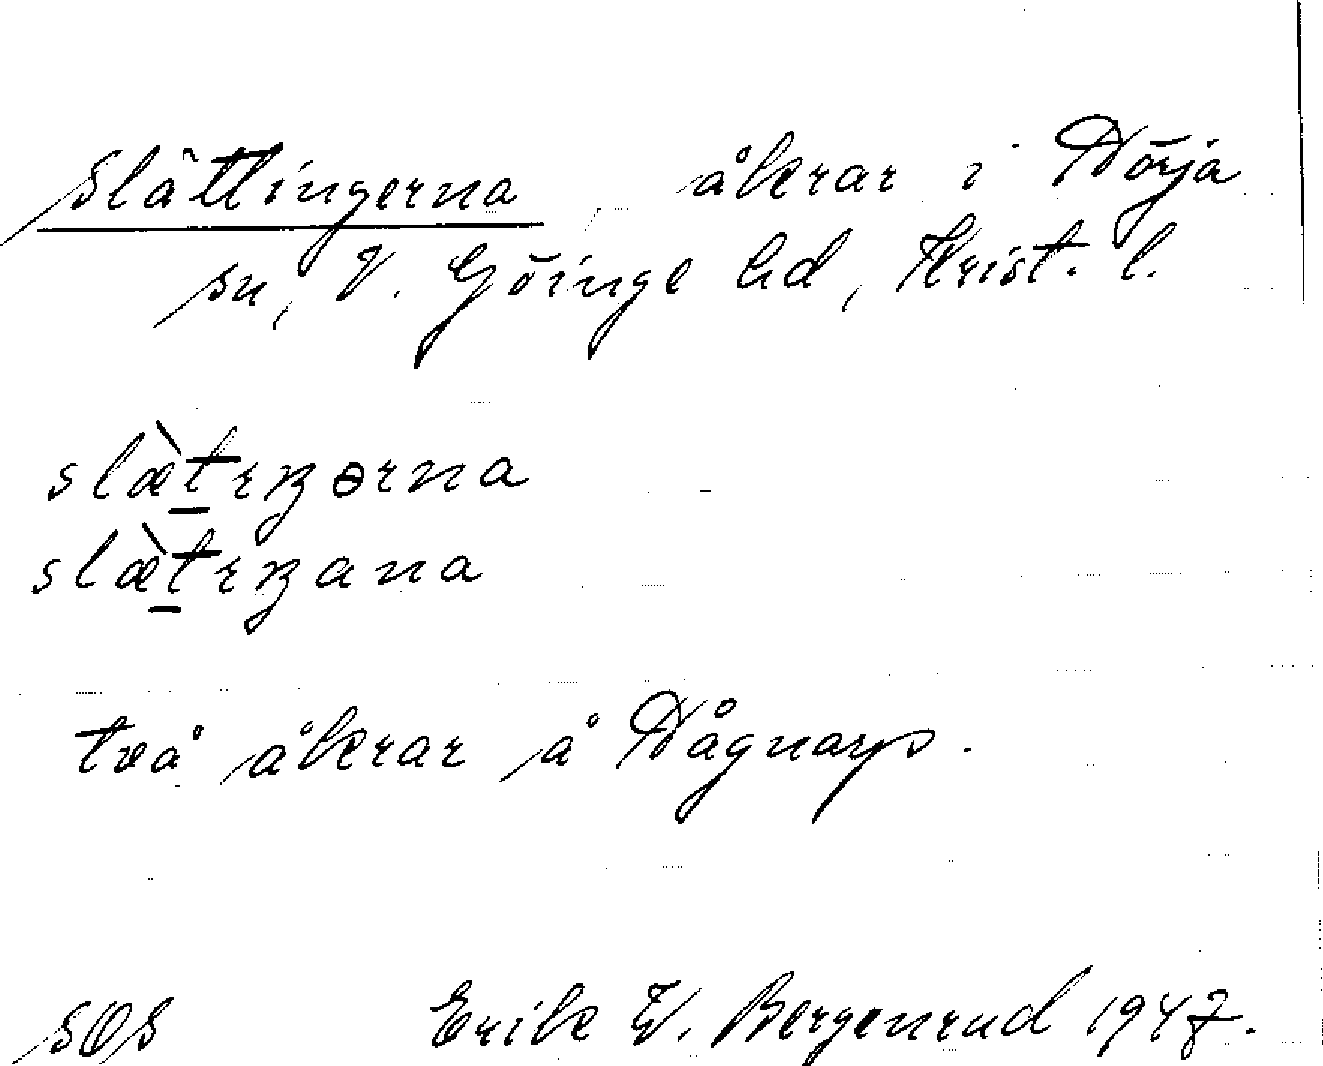 Slättingerna åkrar i Nörja
sn, V. Göinge hd, Krist. l.
slæ̀tɪŋərna
slæ̀tɪŋana
två åkrar å Dågnarp.
SOS Erik W. Bergenrud 1947.